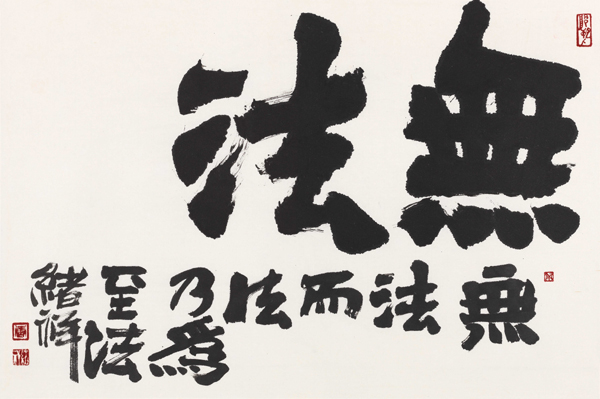 無法
無法而法乃為至法
緒祥